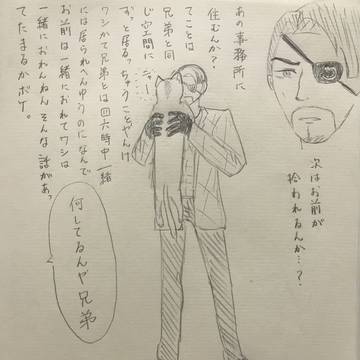 次はお前が
拾われるんか…?
あの事務所に
住むんか?
てことは
兄弟と同
じ空間に
ジー
ずっと居るっちゅうことやんけ
ワシかて兄弟とは四六時中一緒
には居られへんゆうのになんで
お前は一緒におれてワシは
一緒におれんねんそんな話があっ
てたまるかボケ。
何してるんや兄弟